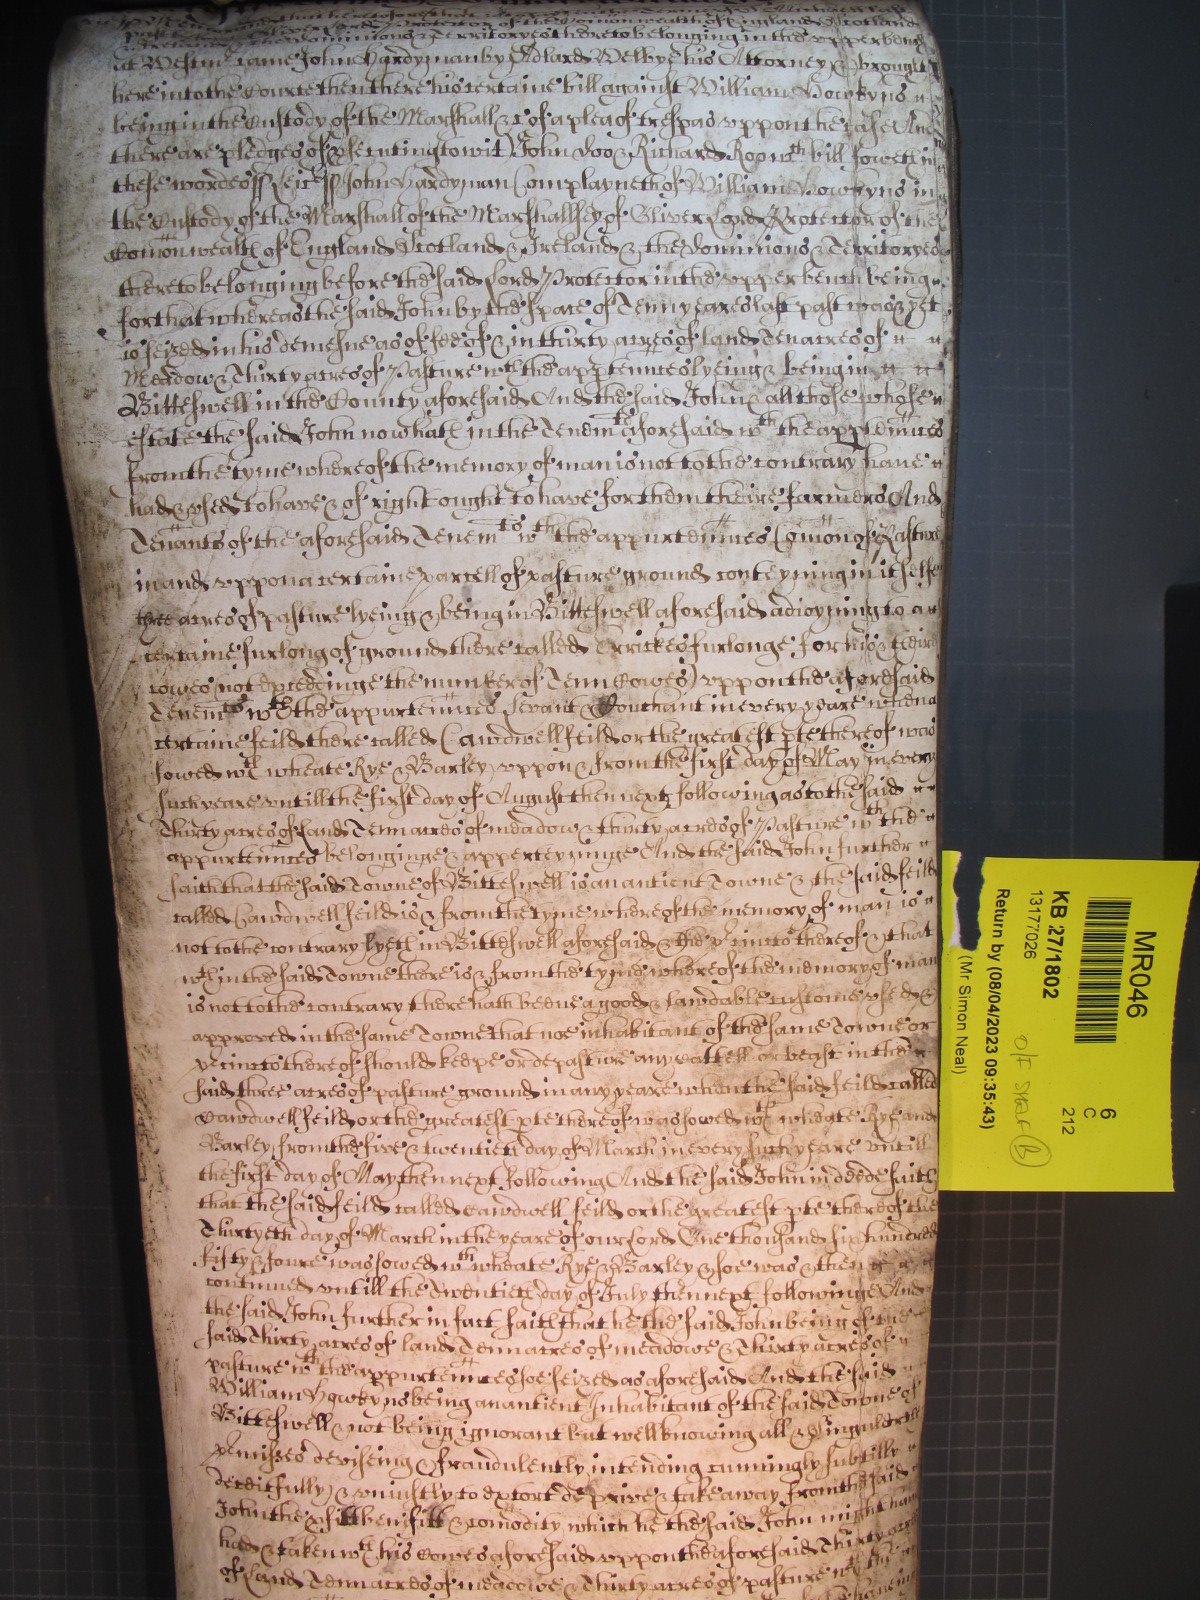 Protector of the Comonwealth of England Scotland
& Ireland & the Dominions & Territoryes thereto belonging in the upper bench
at Westmr came John Hardyman by Adlard Welbye his Attorney & brought
here into the Courte then there his certaine bill against William Hawkyns
being in the Custody of the Marshall &c of a plea of trespas uppon the case And
there are pledges of psecuting to wit John Doo & Richard Roo wch bill foweth in
these wordes ss Leic ss John Hardyman Complayneth of William Hawkyns in
the Custody of the Marshall of the Marshallsey of Oliver Lord Protector of the
Comonwealth of England Scotland & Ireland & the Dominions & Territoryes
thereto belonging before the said Lord Protector in the upper bench being
for that whereas the said John by the space of Tenn yeares last past was & yet
is seized in his demesne as of fee of & in thirty acres of land Tenn acres of
Meadow & Thirty acres of Pasture wth the apptennces lyeing & being in
Bitteswell in the County aforesaid And the said John & all those whose
estate the said John now hath in the Tenemts aforesaid wth the apptennces
from the tyme whereof the memory of man is not to the contrary have
had & used to have & of right ought to have for them theire farmers And
Tenants of the aforesaid Tenemts wth the appurtennces Comon of Pasture
in and uppon a certaine parcell of pasture ground conteyning in it selfe
three acres of pasture lyeing & being in Bitteswell aforesaid adioyning to a
certaine furlong of ground there called Errickes furlonge for his & their
cowes (not exceedinge the number of Tenn Cowes) uppon the aforesaid
Tenemts wth the appurtennces Levant & Couchant in every yeare when a
certaine feild there called Cawdwell feild or the greatest pte thereof was
sowed wth wheate Rye & Barley uppon & from the first day of May in every
such yeare untill the first day of August then next following as to the said
Thirty acres of land Tenn acres of meadow & thirty acres of Pasture wth the
appurtennces belonginge & apperteyninge And the said John further
saith that the said Towne of Bitteswell is an antient Towne & the said feild
called Cawdwell feild is & from the tyme whereof the memory of man is
not to the contrary lyeth in Bitteswell aforesaid & the pcincts thereof & that
wthin the said Towne there is & from the tyme whereof the memory of man
is not to the contrary there hath beene a good & lawdable custome used &
approved in the same Towne that noe inhabitant of the same Towne or
pcincts thereof should keepe or depasture any cattell or beast in the
said three acres of pasture ground in any yeare when the said feild called
Cawdwell feild or the greatest pte thereof was sowed wth wheate Rye and
Barley from the five & twentieth day of March in every such yeare untill
the first day of May then next following And the said John in deede saith
that the said feild called Cawdwell feild or the greatest pte thereof the
Thirtyeth day of March in the yeare of our Lord One thousand six hundred
fifty & foure was sowed wth wheate Rye & Barley & soe was & then
continued untill the Twentieth day of July then next followinge And
the said John further in fact saith that he the said John being of the
said Thirty acres of land Tenn acres of meadowe & Thirty acres of
pasture wth the appurtennces soe seized as aforesaid And the said
William Hawkyns being an antient Inhabitant of the said Towne of
Bitteswell & not being ignorant but well knowing all & singuler the
pmisses deviseing & fraudulently intending cunningly subtilly
deceitfully & uniustly to extort deprive & take away from the said
John the pfitt benifitt & comodity which he the said John might have
had & taken wth his cowes aforesaid uppon the aforesaid Thirty acres
of land Tenn acres of meadowe & Thirty acres of pasture wth the
MR046
KB 27/1802
13177026
6
C
212
O/F SHELF (B)
Return by (08/04/2023 09:35:43)
(Mr Simon Neal)